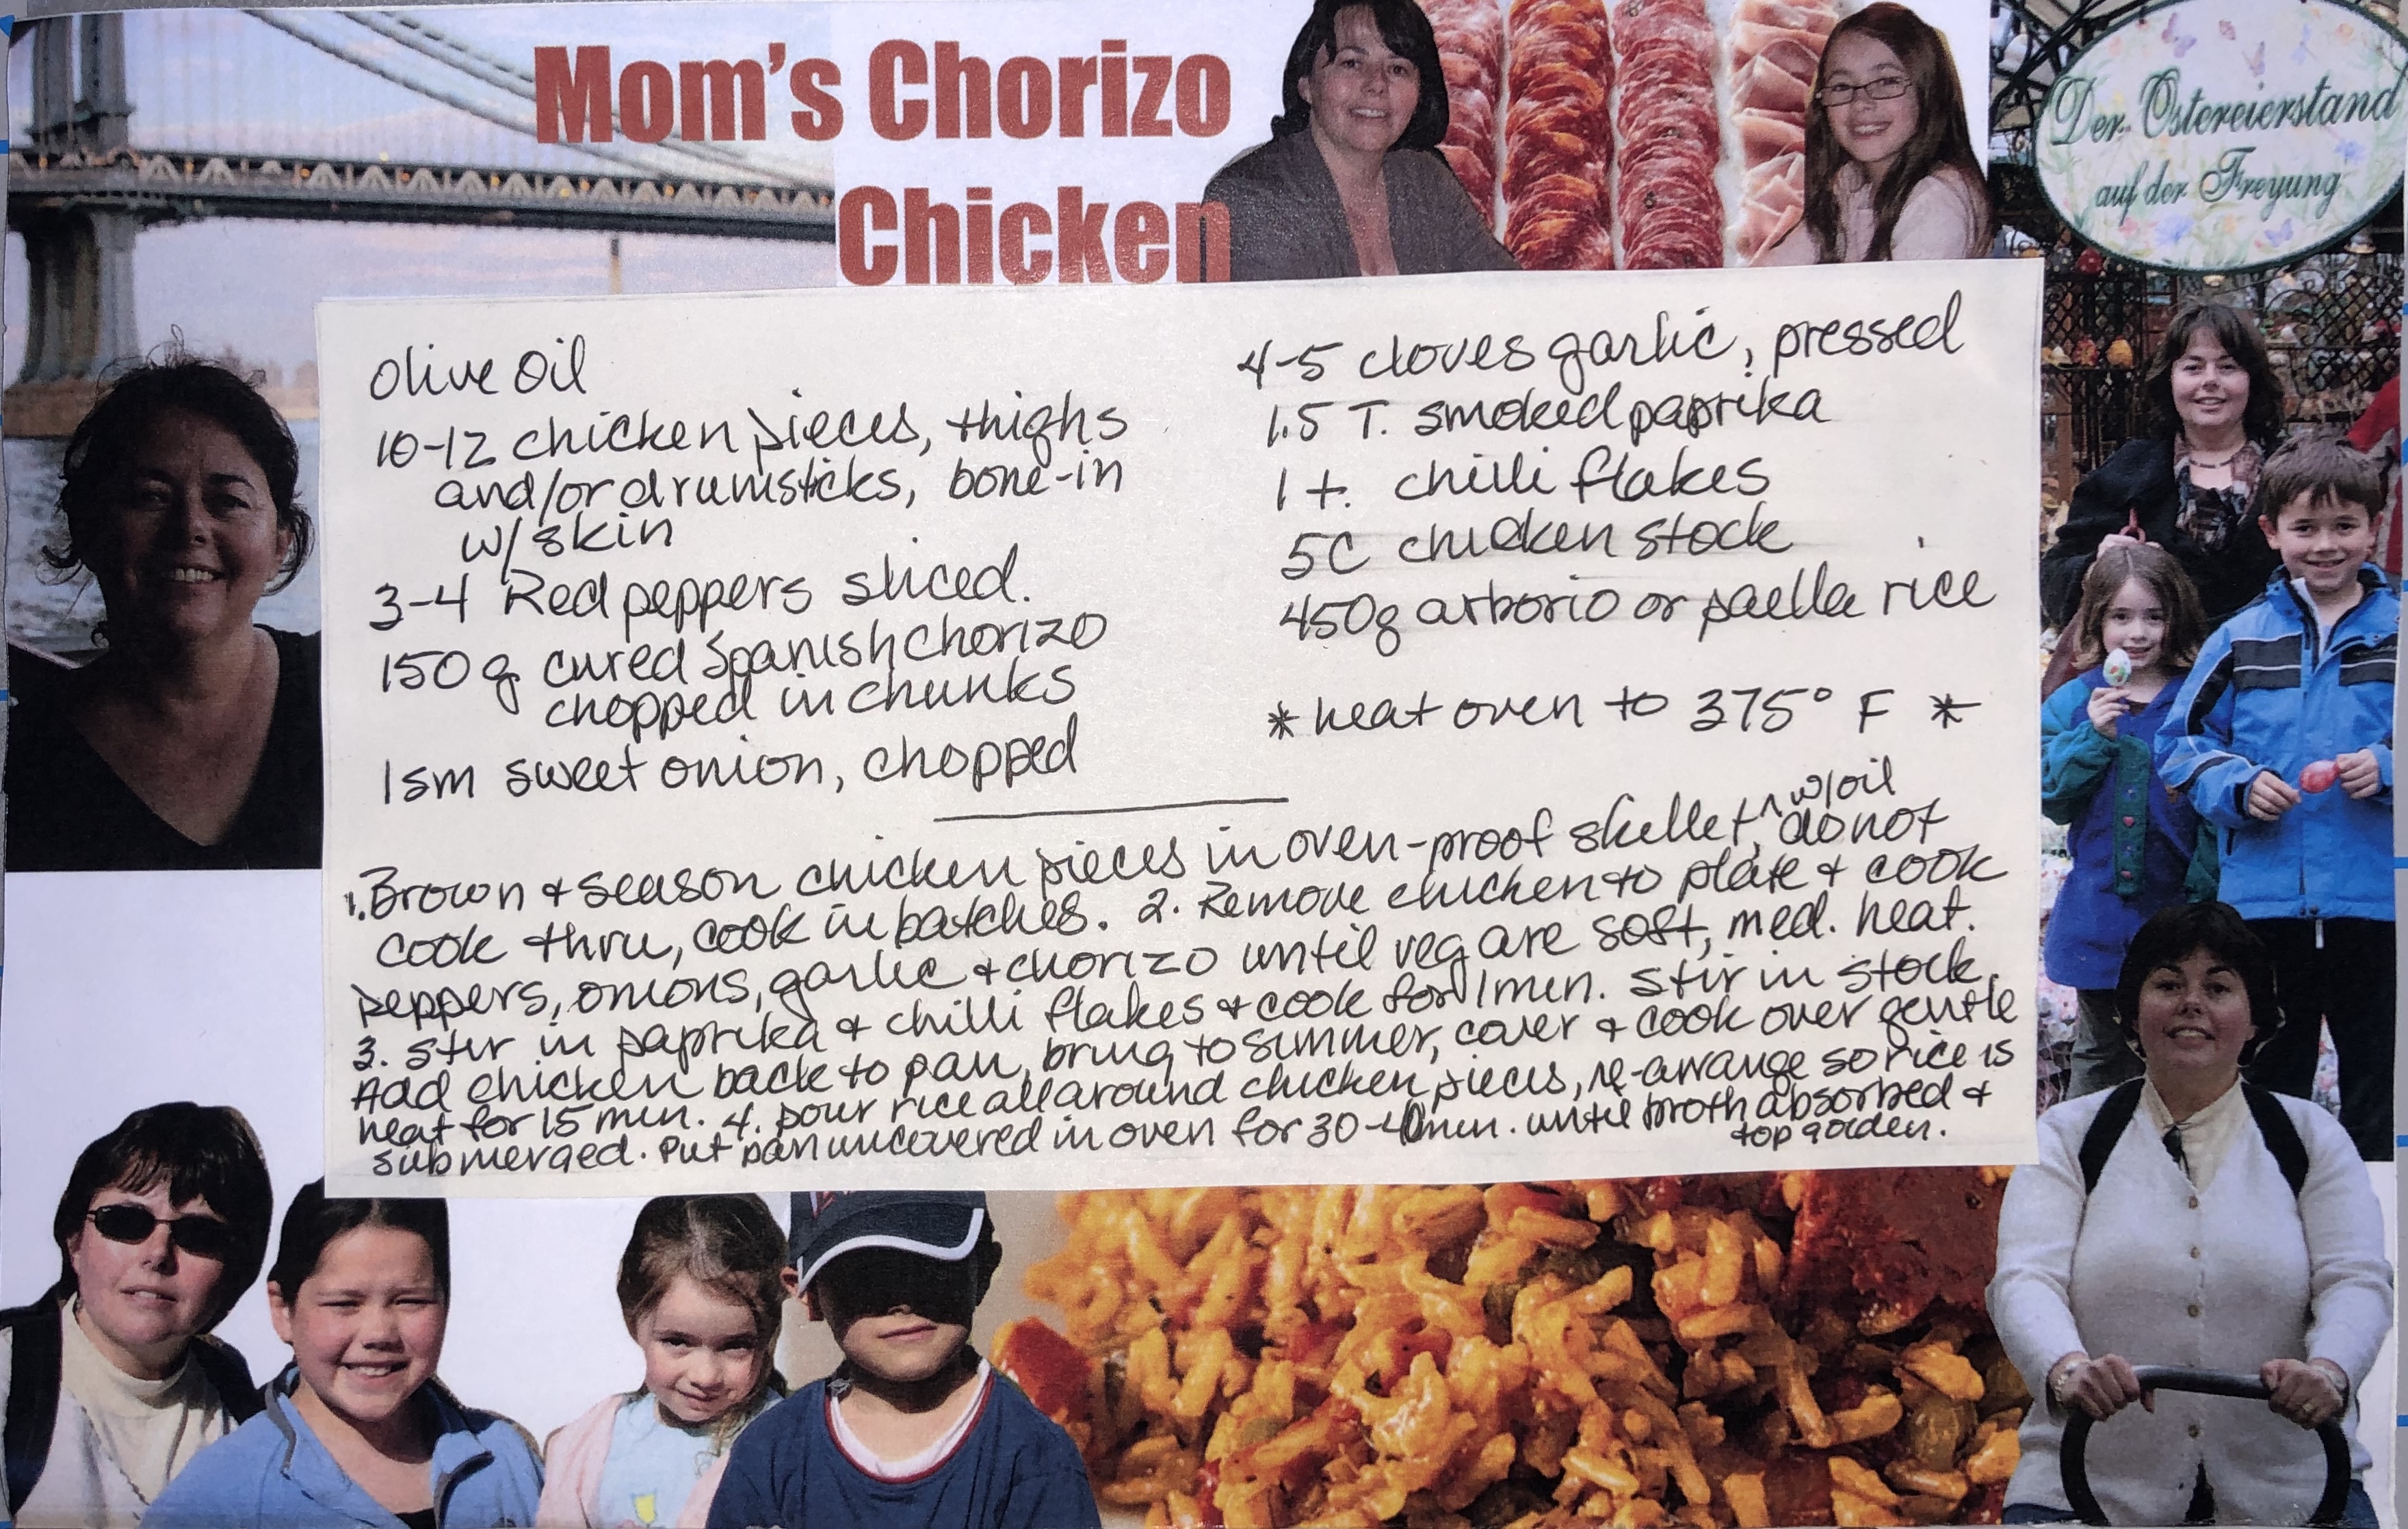 Mom's Chorizo
Chicken
Der Ostereierstand
auf der Freyung
Olive Oil
10-12 chicken pieces, thighs
and/or drumsticks, bone-in
w/skin
3-4 Red peppers sliced.
150 g cured Spanish Chorizo
chopped in chunks
1 sm sweet onion, chopped
4-5 cloves garlic, pressed
1.5 T. smoked paprika
1 t. chilli flakes
5C chicken stock
450g arborio or paella rice
* heat oven to 375° F *
1. Brown & season chicken pieces in oven-proof skillet ^ w/oil, do not
cook thru, cook in batches. 2. Remove chicken to plate & cook
peppers, onions, garlic & chorizo until veg are soft, med. heat.
3. Stir in paprika & chilli flakes & cook for 1 min. Stir in stock.
Add chicken back to pan, bring to simmer, cover & cook over gentle
heat for 15 min. 4. pour rice all around chicken pieces, re-arrange so rice is
submerged. Put pan uncovered in oven for 30-40 min. until broth absorbed &
top golden.